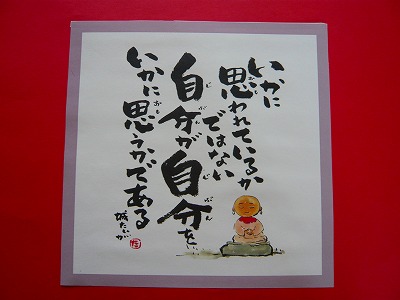 いかに
思われているか
ではない
自分が自分を
いかに思うかである
城たいが